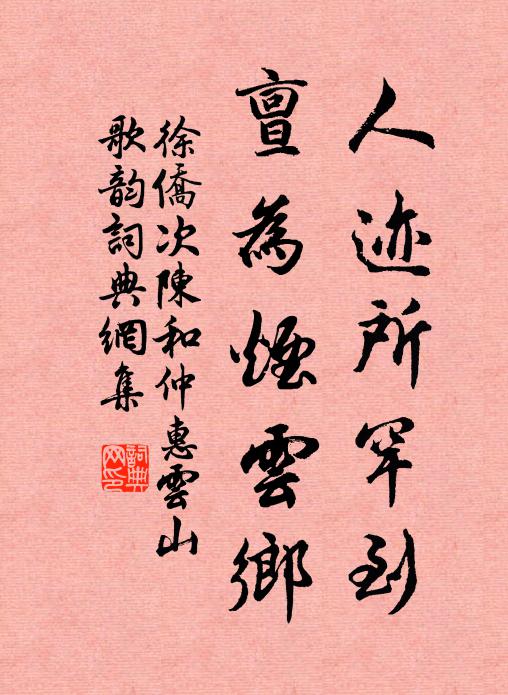 人迹所罕到
亶為煙雲鄉
徐僑次陳和仲惠雲山
歌韵詞典網集
詞典網印